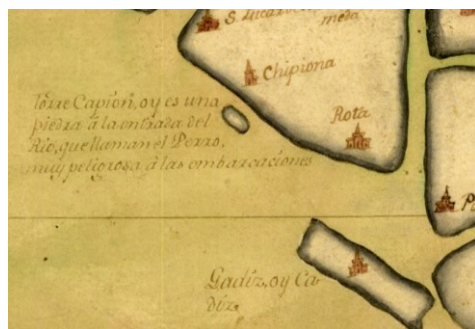 S. Luca
meda
Chipiona
Torre Capion, oy es una
piedra à la entrada del
Rio, que llaman el Perro,
muy peligrosa à las embarcaciones
Rota
Gadiz, oy Ca
diz.